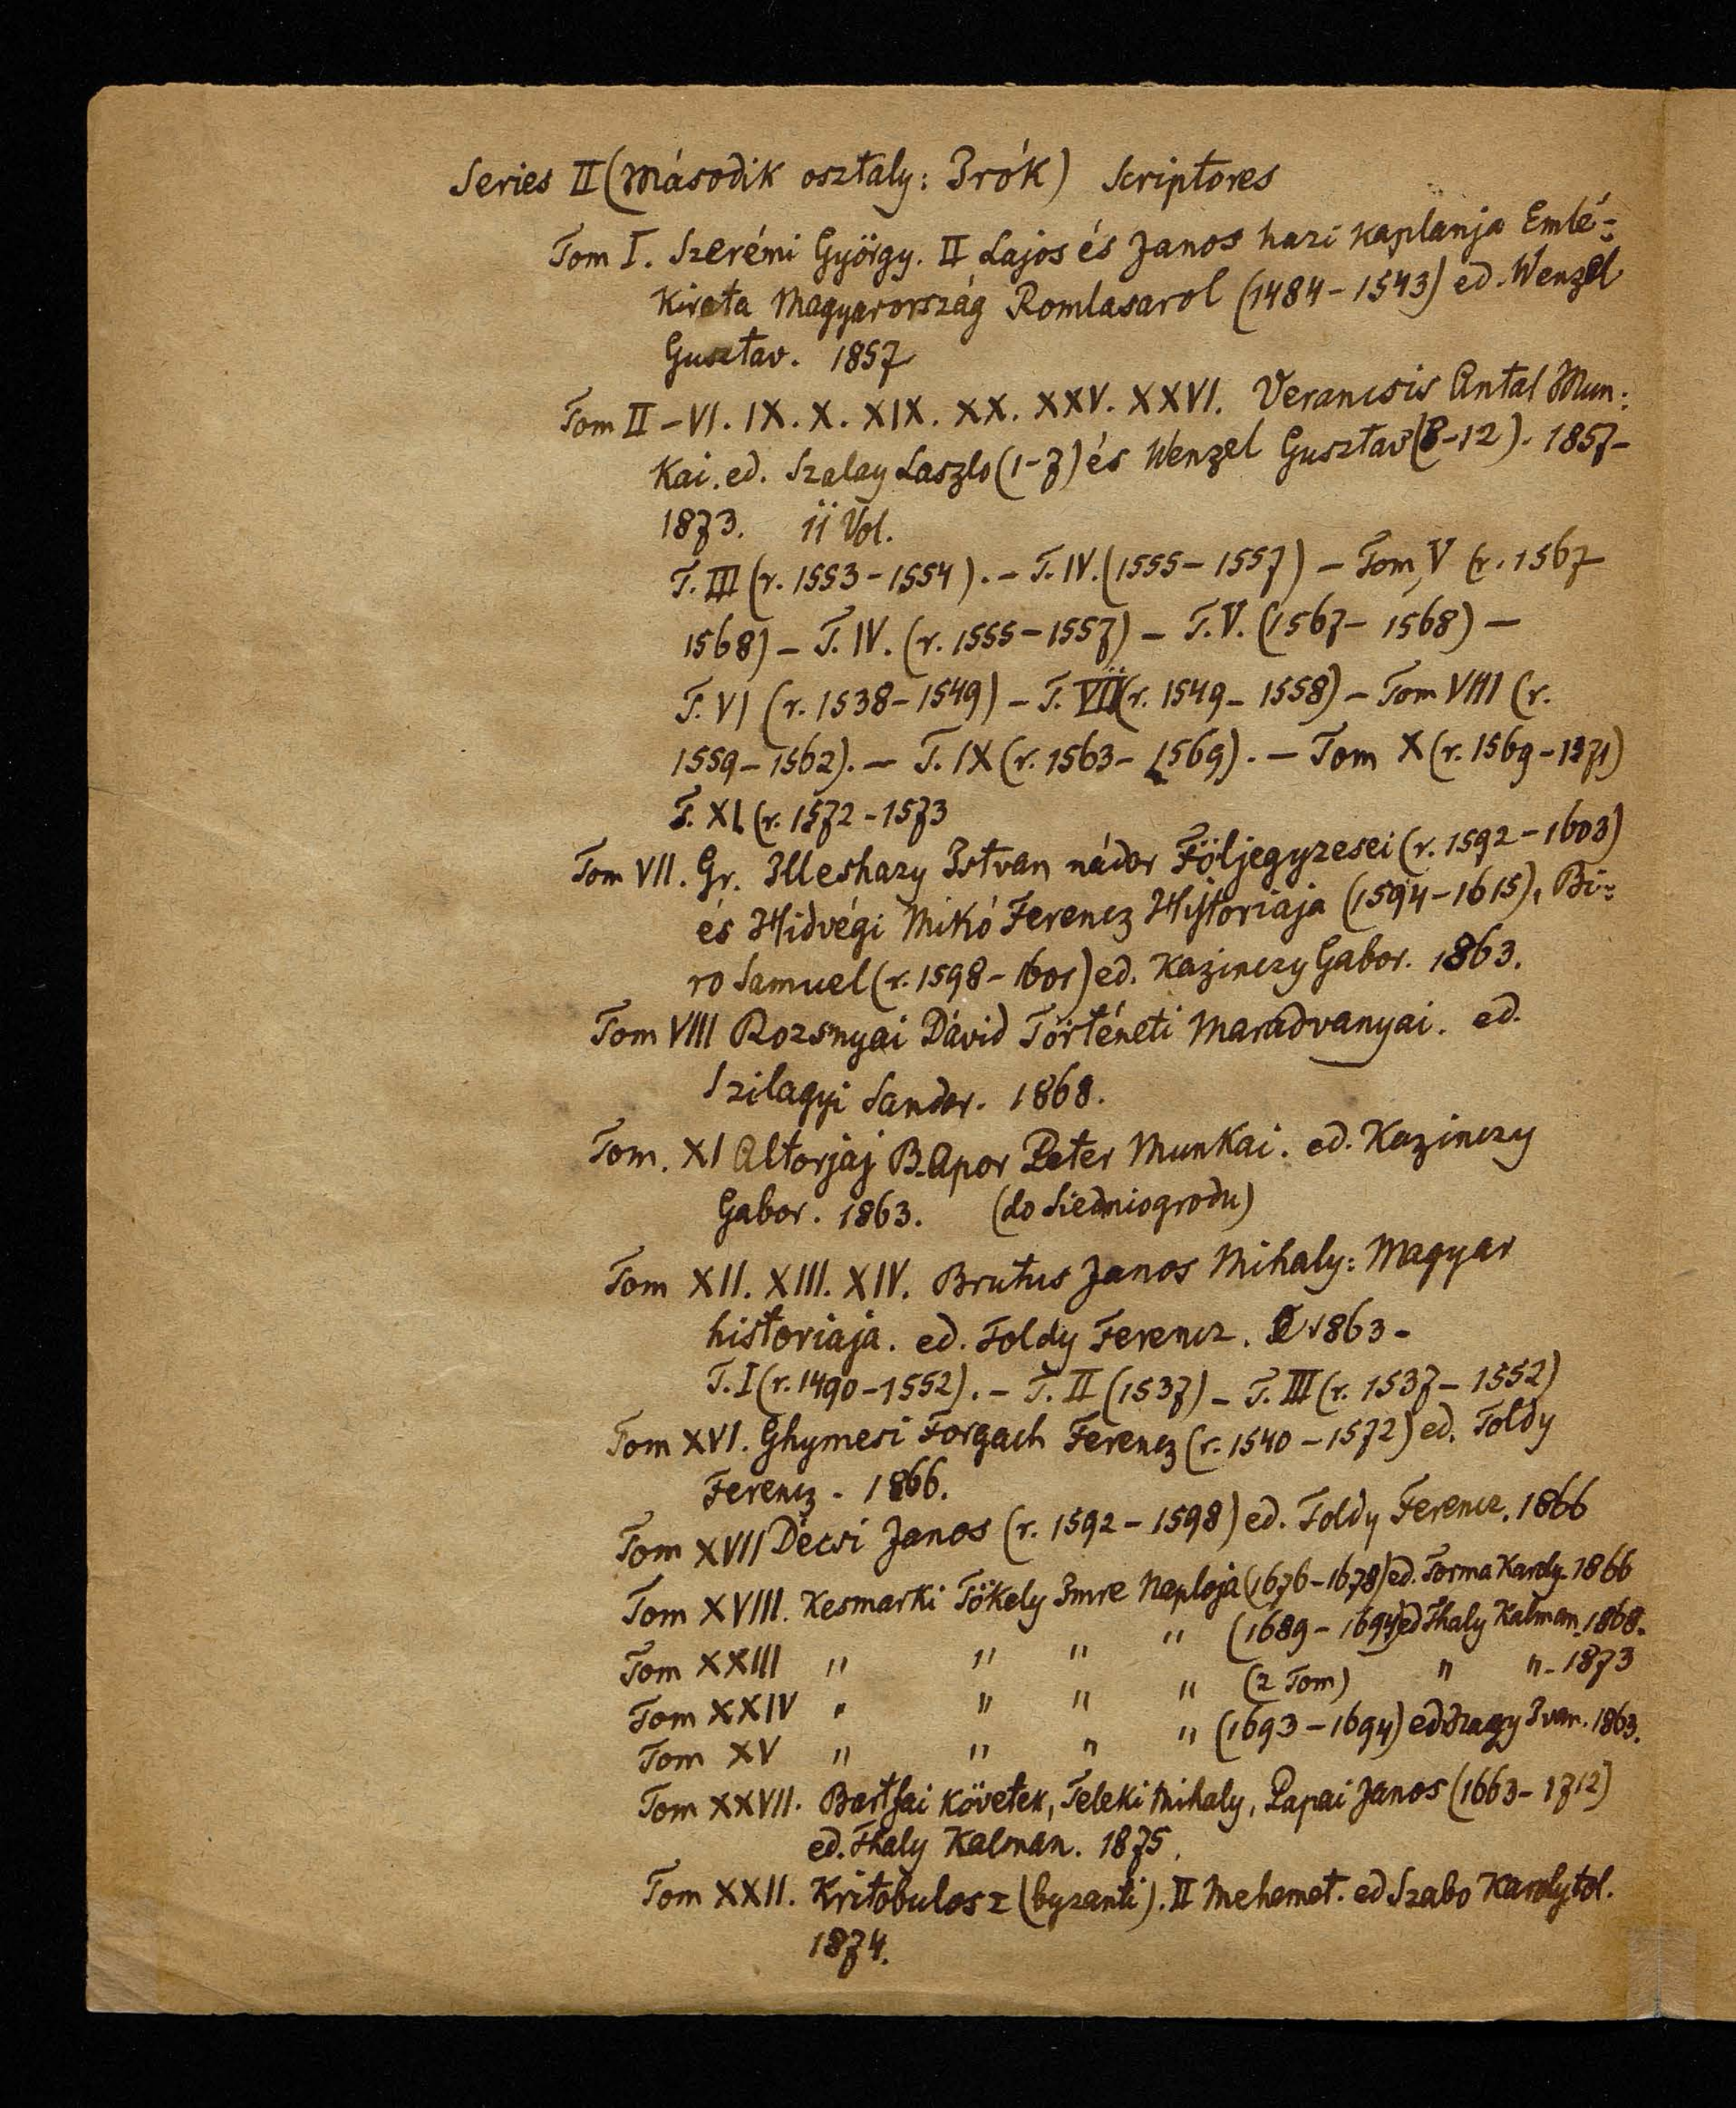 Series II (Második osztaly: Irók) Scriptores
Tom I. Szerémi György. II Lajos és Janos hazi kaplanja Emlé-
kirata Magyarország Romlasarol (1484-1543) ed. Wenzel
Gusztav. 1857
Tom II-VI. IX. X. XIX. XX. XXV. XXVI. Verancsis Antal Mun:
kai. ed. Szalay Laszlo (1-7) és Wenzel Gusztav (8-12). 1857-
1873. 11 Vol.
T. III (r. 1553-1554). - T. IV. (1555-1557) - Tom V (r. 1567
1568) - T. IV. (r. 1555-1557) - T. V. (1567-1568) -
T. VI (r. 1538-1549) - T. VII (r. 1549-1558) - Tom VIII (r.
1559-1562). - T. IX (r. 1563-1569). - Tom X (r. 1569-1571)
T. XI (r. 1572-1573
Tom VII. Gr. Illeshazy Istvan nádor Följegyzesei (r. 1592-1603)
és Hidvégi Mikó Ferencz Historiaja (1594-1615), Bi-
ro Samuel (r. 1598-1601) ed. Kazinczy Gabor. 1863.
Tom VIII Rozsnyai Dávid Történeti Maradvanyai. ed.
Szilagyi Sandor. 1868.
Tom. XI Altorjaj B. Apor Peter Munkai. ed. Kazinczy
Gabor. 1863. (do Siedniogrodu)
Tom XII. XIII. XIV. Brutus Janos Mihaly: Magyar
historiaja. ed. Toldy Ferencz. 1863-
T. I (r. 1490-1552). - T. II (1537) - T. III (r. 1537-1552)
Tom XVI. Ghymesi Forgach Ferencz (r. 1540-1572) ed. Toldy
Ferencz - 1866.
Tom XVII Decsi Janos (r. 1592-1598) ed. Toldy Ferencz. 1866
Tom XVIII. Kesmarki Tökely Imre Naploja (1676-1678) ed. Torma Karoly. 1866
Tom XXIII " " " " (1689-1694) ed Thaly Kalman. 1868.
Tom XXIV " " " " (2 Tom) " " - 1873
Tom XV " " " " (1693-1694) ed Nagy Ivan. 1863.
Tom XXVII. Bartfai követek, Teleki Mihaly, Papai Janos (1663-1712)
ed. Thaly Kalman. 1875.
Tom XXII. Kritobulosz (byzanti). II Mehemet. ed Szabo Karolytol.
1874.